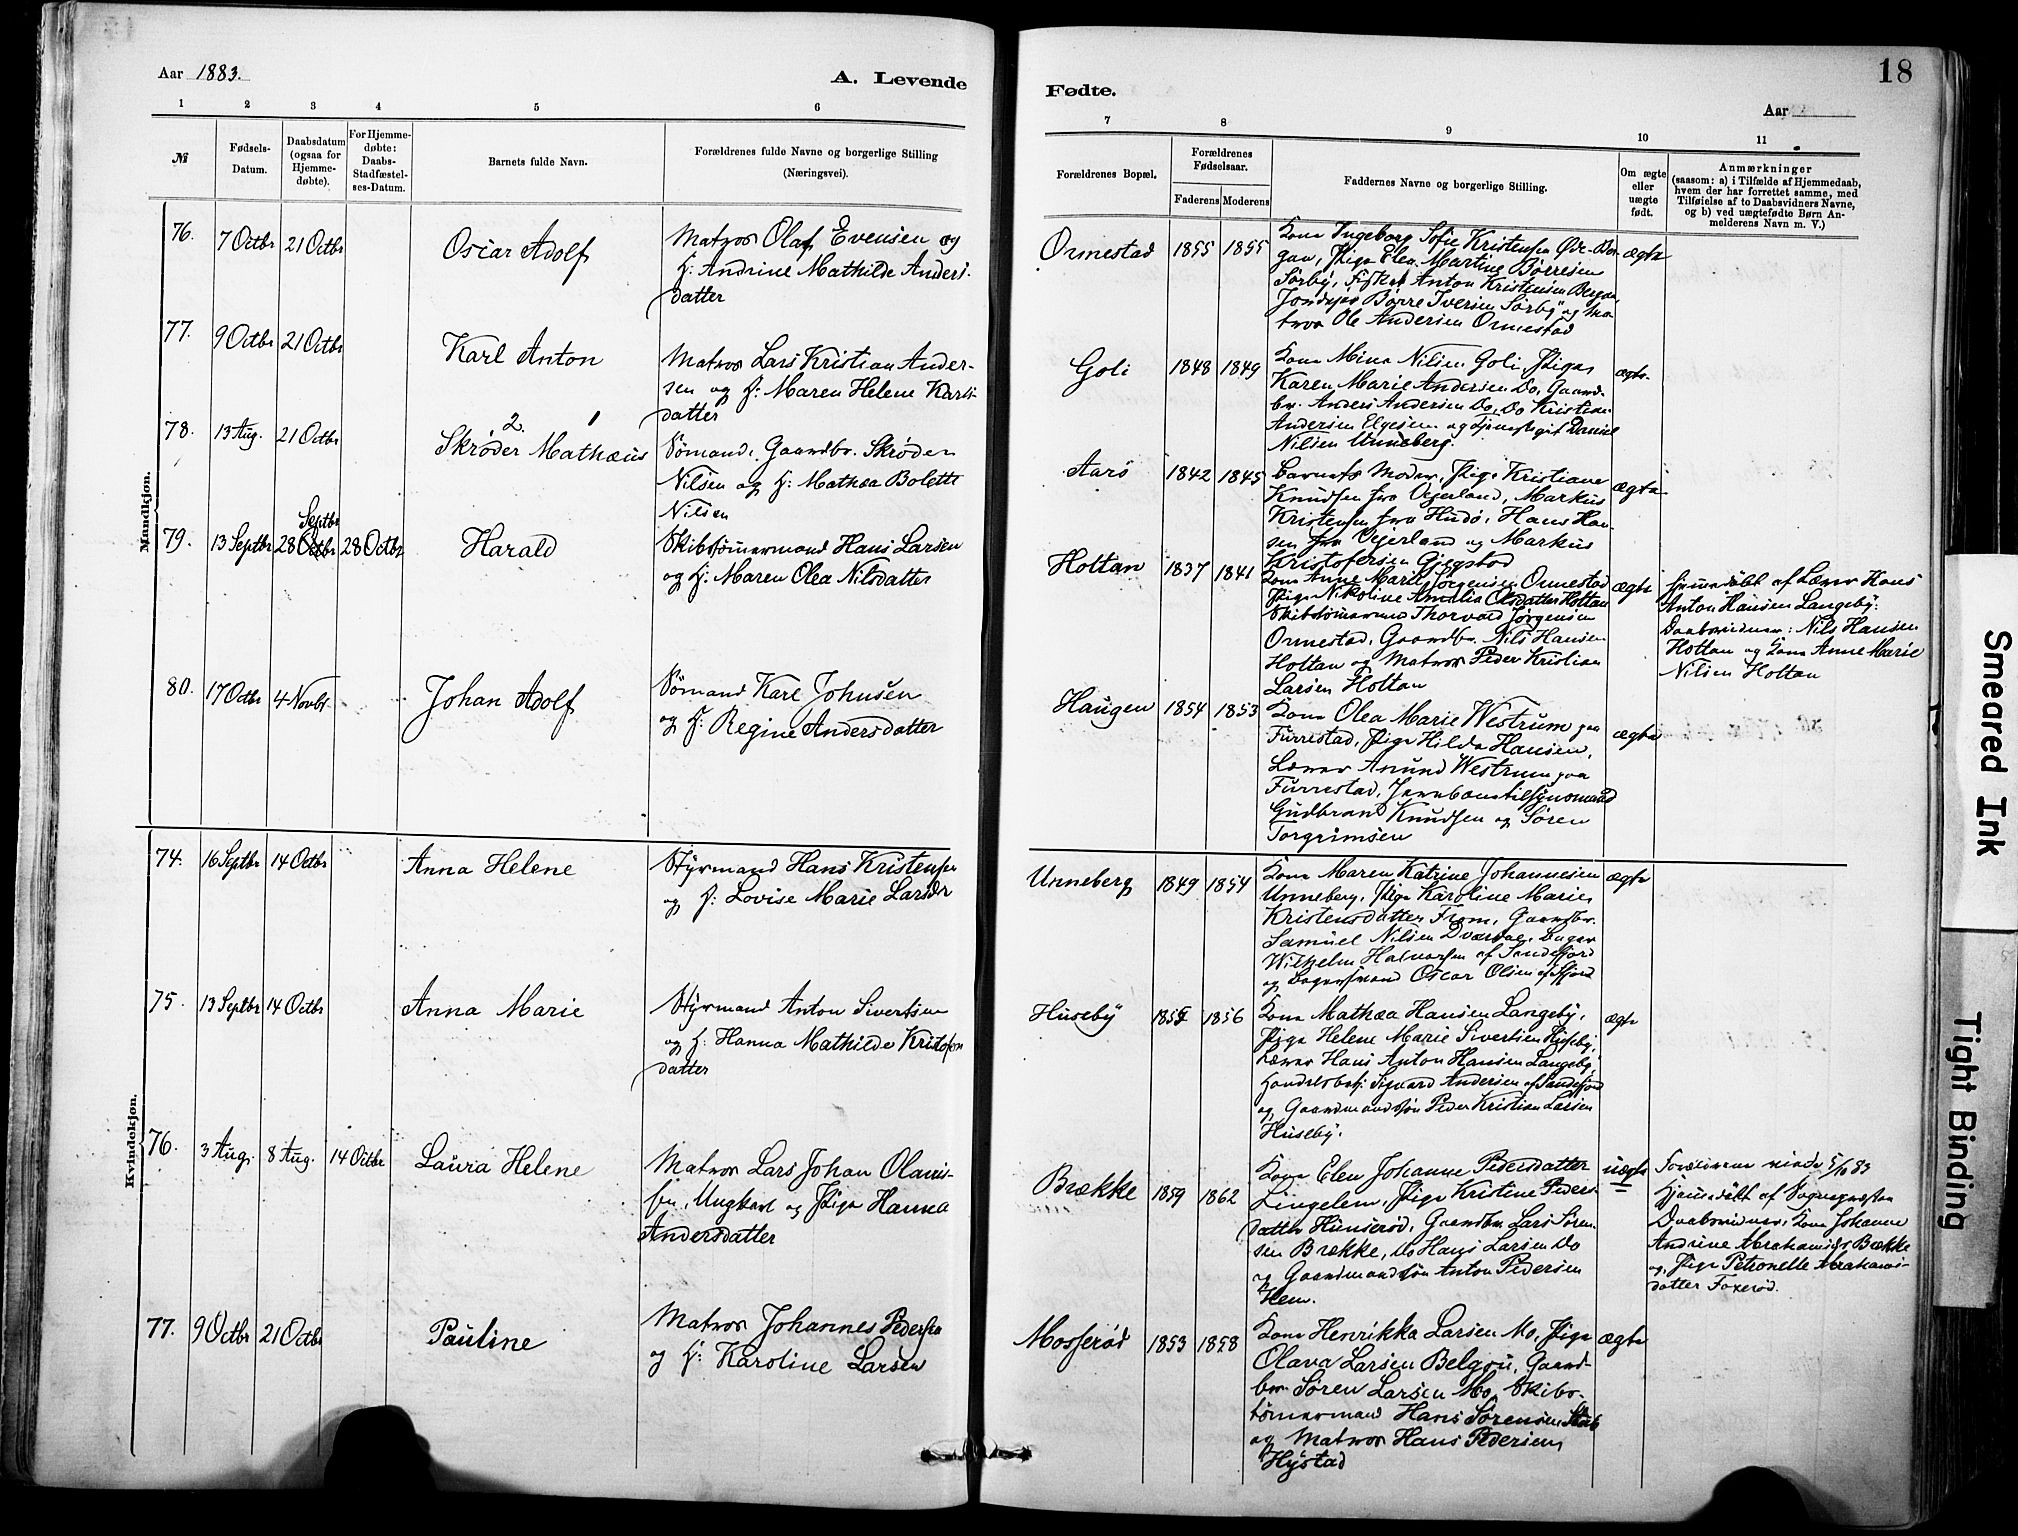 Aar 1883.
A. Levende
1 2 3 4 5 6
№
Fødsels-
Datum.
Daabsdatum
(ogsaa for
Hjemme-
døbte).
For Hjemme-
døbte:
Daabs-
Stadfæstel-
ses-Datum.
Barnets fulde Navn.
Forældrenes fulde Navne og borgerlige Stilling
(Næringsvei).
Mandkjøn.
76. 7 Octbr 21 Octbr Oscar Adolf
Matros Olaf Evensen og
H: Andrine Mathilde Anders-
datter
77. 9 Octbr 21 Octbr Karl Anton
Matros Lars Kristian Ander-
sen og H: Maren Helene Karls-
datter
2. 1
78. 13 Aug. 21 Octbr Skrøder Mathæus
Sømand, Gaardbr. Skrøder
Nilsen og H: Mathea Bolette
Nilsen
Septbr
79. 13 Septbr 28 Octbr 28 Octbr Harald
Skibstømmermand Hans Larsen
og H: Maren Olea Nilsdatter
80. 17 Octbr 4 Novbr Johan Adolf
Sømand Karl Johnsen
og H: Regine Andersdatter
Kvindekjøn.
74. 16 Septbr 14 Octbr Anna Helene
Styrmand Hans Kristensen
og H: Lovise Marie Larsdr
75. 13 Septbr 14 Octbr Anna Marie
Styrmand Anton Sivertsen
og H: Hanna Mathilde Kristofers
datter
76. 3 Aug. 8 Aug. 14 Octbr Laura Helene
Matros Lars Johan Olaus-
sen, Ungkarl og Pige Hanna
Andersdatter
77. 9 Octbr 21 Octbr Pauline
Matros Johannes Pedersen
og H: Karoline Larsen
18
Fødte.
Aar
7 8 9 10 11
Forældrenes Bopæl.
Forældrenes
Fødselsaar.
Faderens Moderens
Faddernes Navne og borgerlige Stilling.
Om ægte
eller
uægte
født.
Anmærkninger
(saasom: a) i Tilfælde af Hjemmedaab,
hvem der har forrettet samme, med
Tilføielse af to Daabsvidners Navne,
og b) ved uægtefødte Børn An-
melderens Navn m. V.)
Ormestad 1855 1855
Kone Ingeborg Sofie Kristensen Ør-Ber-
gan, Pige Elen Martine Børresen
Sørby, Fisker Anton Kristensen Bergan,
Jordejer Børre Iversen Sørby og Ma-
tros Ole Andersen Ormestad
ægte
Goli 1848 1849
Kone Mina Nilsen Goli, Pige
Karen Marie Andersen Do, Gaard-
br. Anders Andersen Do, Do Kristian
Andersen Elgesem og Daniel
Nilsen Unneberg.
ægte
Aarø 1842 1845
Barnets Moder, Pige Kristiane
Knudsen fra Vejerland, Markus
Kristensen fra Hudø, Hans Han-
sen fra Vejerland og Markus
Kristofersen Gjegstad
ægte
Holtan 1837 1841
Kone Anne Marie Jørgensen Ormestad
Pige Nikoline Amalia Olsdatter Holtan
Skibstømmermd Thorvald Jørgensen
Ormestad, Gaardbr. Nils Hansen
Holtan og Matros Peder Kristian
Larsen Holtan
ægte
Hjemmedøbt af Lærer Hans
Anton Hansen Langeby:
Daabsvidner: Nils Hansen
Holtan og Kone Anne Marie
Nilsen Holtan
Haugen 1854 1853
Kone Olea Marie Westrum paa
Furrestad, Pige Hilda Hansen,
Lærer Anund Westrum paa
Furrestad, Jernbanetilsynsmand
Gudbrand Knudsen og Søren
Torgrimsen
ægte
Unneberg 1849 1854
Kone Maren Katrine Johannesen
Unneberg, Pige Karoline Marie
Kristensdatter Fram, Gaardbr.
Samuel Nilsen Dværdal, Bager
Wilhelm Halvorsen af Sandefjord
og Oscar Olsen af Sfjord
ægte
Huseby 1855 1856
Kone Mathea Hansen Langeby,
Pige Helene Marie Sivertsen Huseby,
Lærer Hans Anton Hansen Langeby,
Handelsbetj. Sigvard Andersen af Sandefjord
og Gaardmandssøn Peder Kristian Larsen
Huseby.
ægte
Brække 1859 1862
Kone Elen Johanne Pedersdatter
Lingelem, Pige Kristine Peders-
datter Hunserød, Gaardbr. Lars Søren-
sen Brække, Do Hans Larsen Do
og Gaardmandssøn Anton Pedersen
Hem.
uægte
Forældrene viede 5/10 83
Hjemmedøbt af Sognepresten
Daabsvidner, Kone Johanne
Andrine Abrahamsdr Brække
og Pige Petronelle Abrahams-
datter Foxerød.
Mosserød 1853 1858
Kone Henrikka Larsen Mo, Pige
Olava Larsen Belgau, Gaard-
br. Søren Larsen Mo, Skibs-
tømmermand Hans Sørensen Stub
og Matros Hans Pedersen
Hystad
ægte
Smeared Ink
Tight Binding